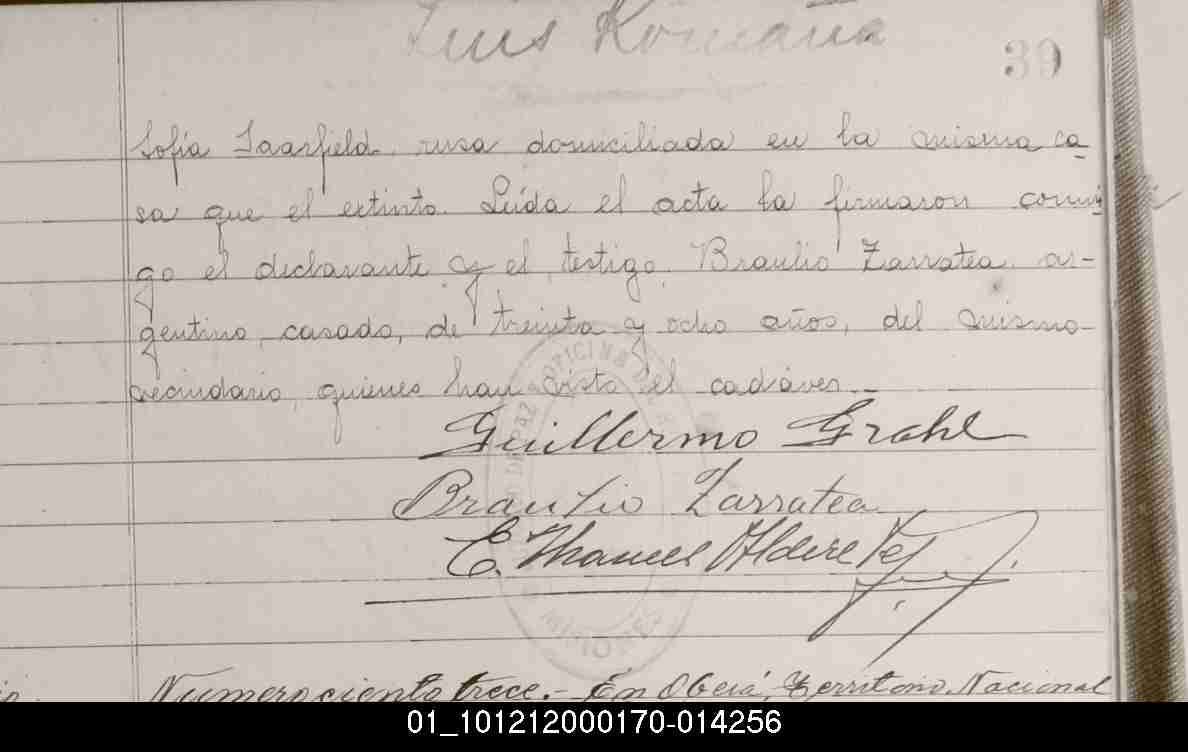 Luis Romaña
39
Sofía Saarfield, rusa domiciliada en la misma ca-
sa que el extinto. Leída el acta la firmaron conmi-
go el declarante y el testigo Braulio Zarratea, ar-
gentino, casado, de treinta y ocho años, del mismo
vecindario, quienes han visto el cadáver.-
Guillermo Grahl
Braulio Zarratea
E. Manuel Alderete
OFICINA
DE PAZ
MISIONES
Número ciento trece.- En Oberá, Territorio Nacional
01_101212000170-014256